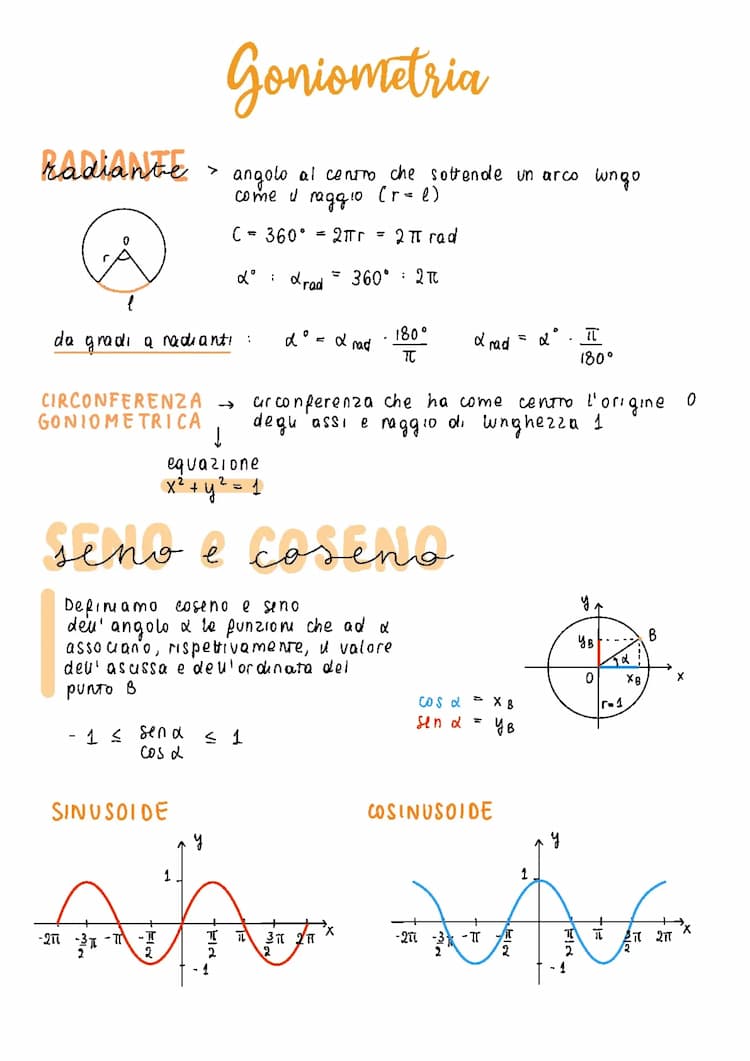 Goniometria
RADIANTE
radiante > angolo al centro che sottende un arco lungo
come il raggio (r = l)
C = 360° = 2πr = 2π rad
α° : α rad = 360° : 2π
O
r
l
da gradi a radianti : α° = α rad · 180°/π α rad = α° · π/180°
CIRCONFERENZA → circonferenza che ha come centro l'origine O
GONIOMETRICA degli assi e raggio di lunghezza 1
↓
equazione
x² + y² = 1
SENO e COSENO
seno e coseno
Definiamo coseno e seno
dell'angolo α le funzioni che ad α
associano, rispettivamente, il valore
dell'ascissa e dell'ordinata del
punto B
- 1 ≤ sen α ≤ 1
cos α
y
yB B
α
O xB x
r=1
cos α = xB
sen α = yB
SINUSOIDE
y
1
-2π -3/2π -π -π/2 π/2 π 3/2π 2π x
-1
COSINUSOIDE
y
1
-2π -3/2π -π -π/2 π/2 π 3/2π 2π x
-1